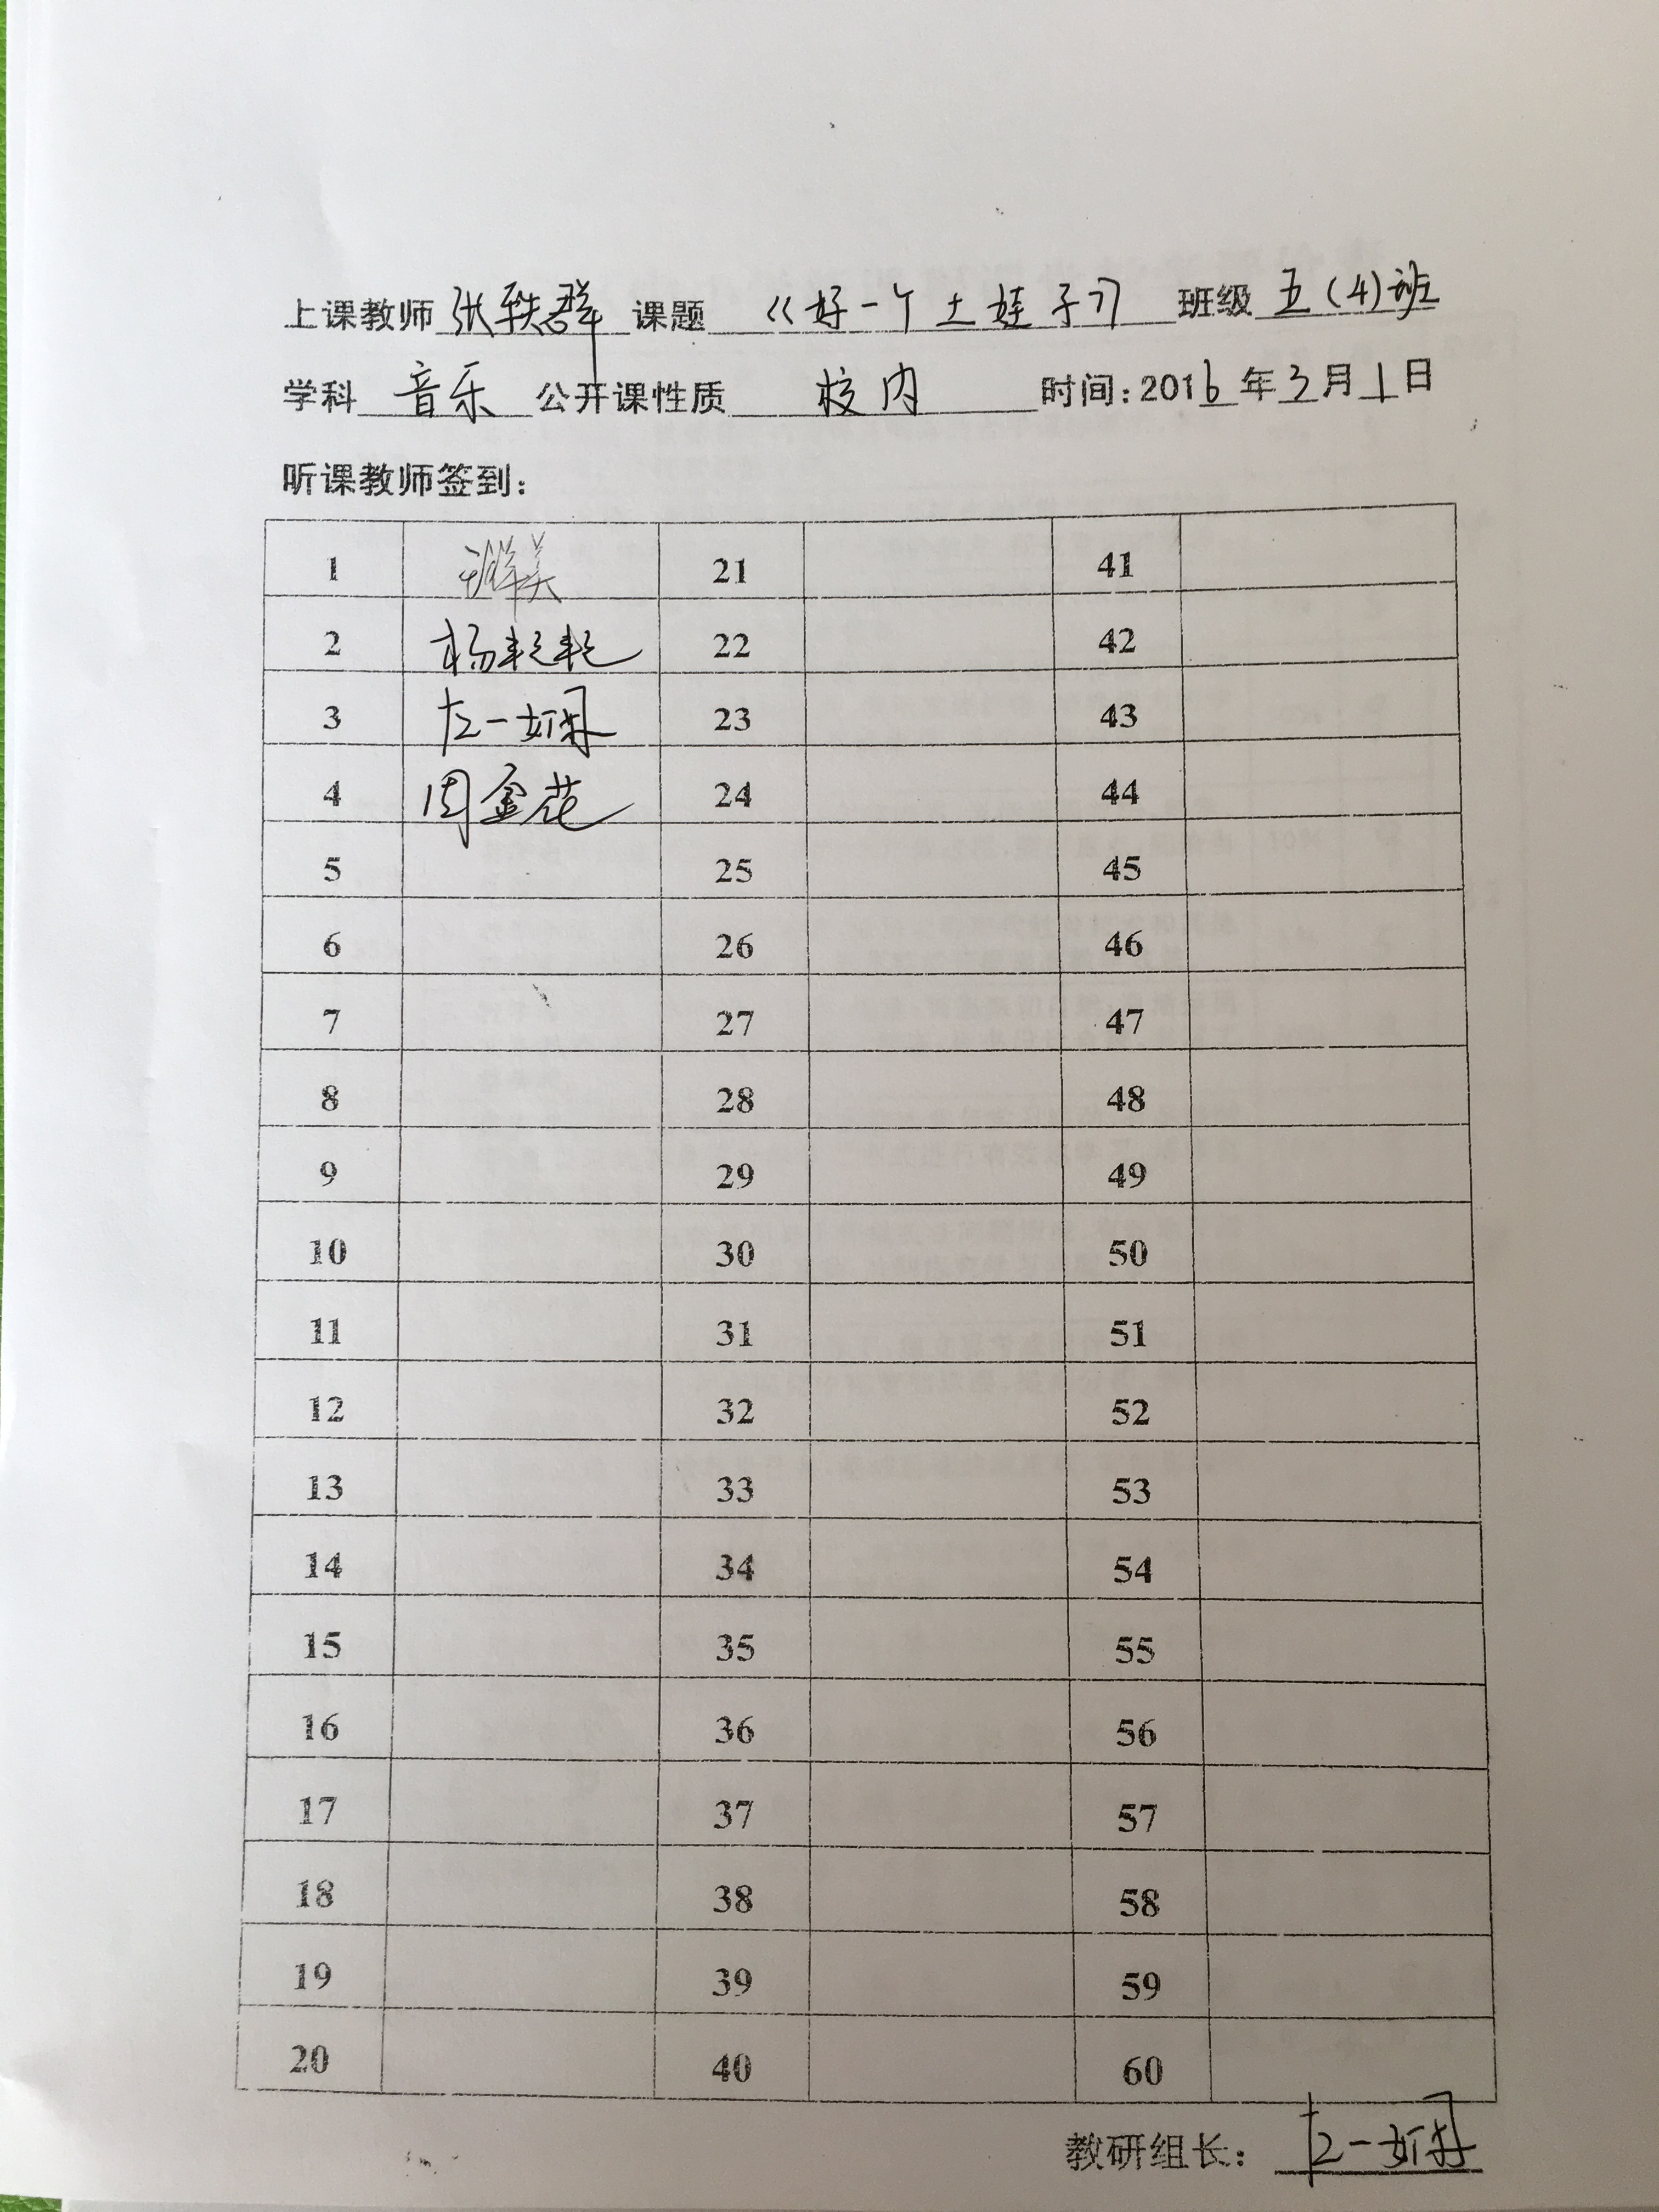 上课教师 张轶群 课题 《好一个土娃子》 班级 五(4)班
学科 音乐 公开课性质 校内 时间: 2016年3月1日
听课教师签到:
1 21 41
2 杨乾乾 22 42
3 左一 23 43
4 周金花 24 44
5 25 45
6 26 46
7 27 47
8 28 48
9 29 49
10 30 50
11 31 51
12 32 52
13 33 53
14 34 54
15 35 55
16 36 56
17 37 57
18 38 58
19 39 59
20 40 60
教研组长: 左一